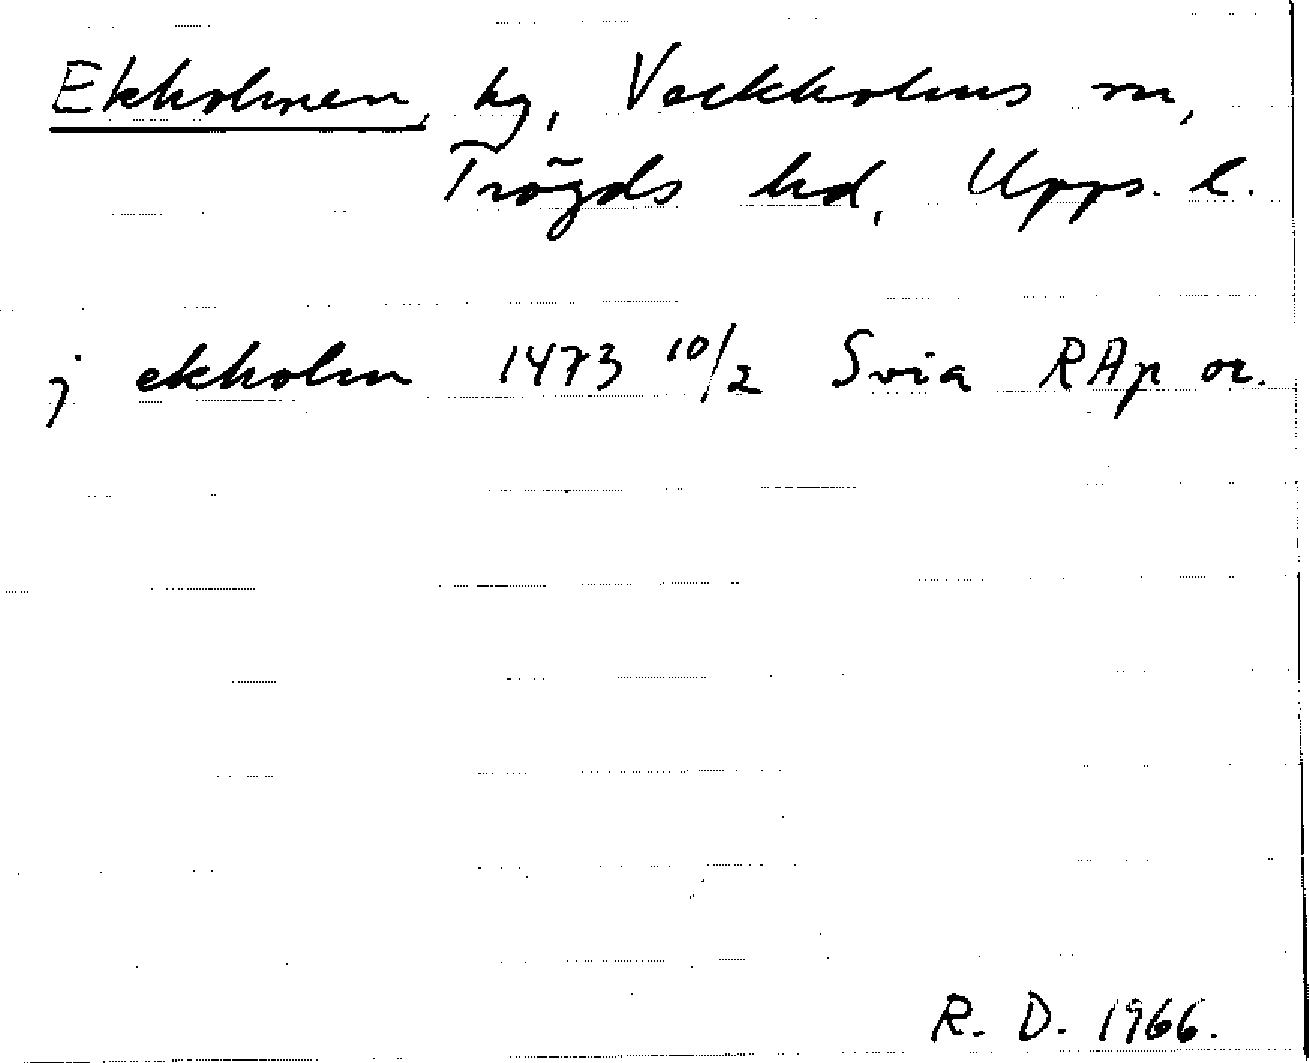 Ekholmen, hg, Vackholms sn,
Trögds hd, Upps. l.
j ekholm 1473 10/2 Svia RAp or.
R. D. 1966.